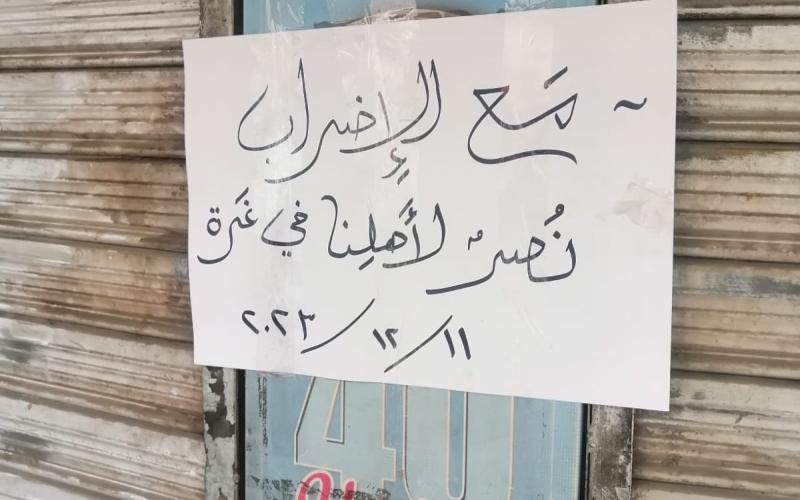 ~ مَع الإِضراب
نُصرٌ لأَهلِنا في غَزة
١١/١٢/٢٠٢٣
40